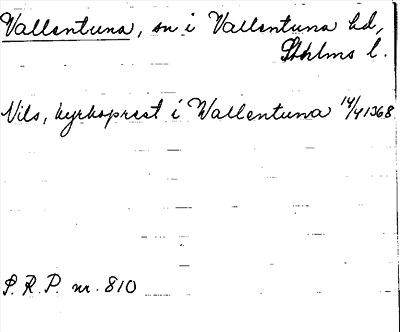 Vallentuna, sn i Vallentuna hd,
Sthlms l.
Nils, kyrkoprest i Wallentuna 14/4 1368
S.R.P. nr. 810